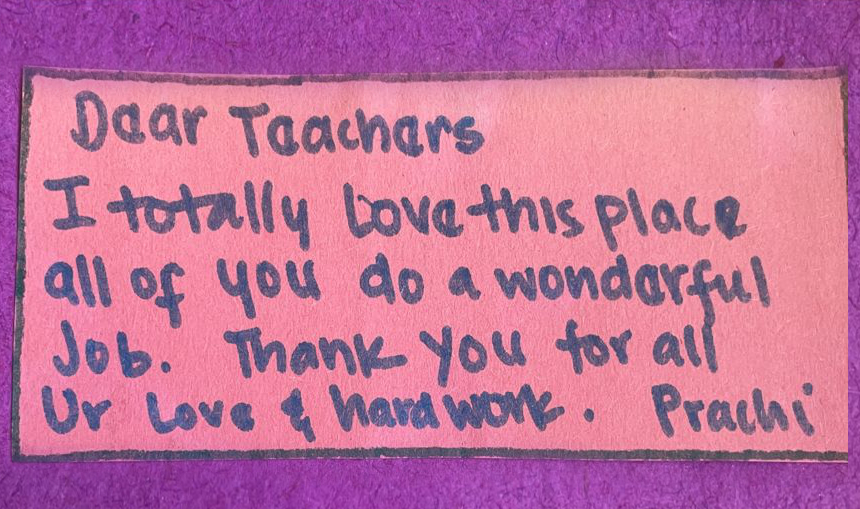 Dear Teachers
I totally Love this place
all of you do a wonderful
Job. Thank you for all
Ur Love & hardwork. Prachi